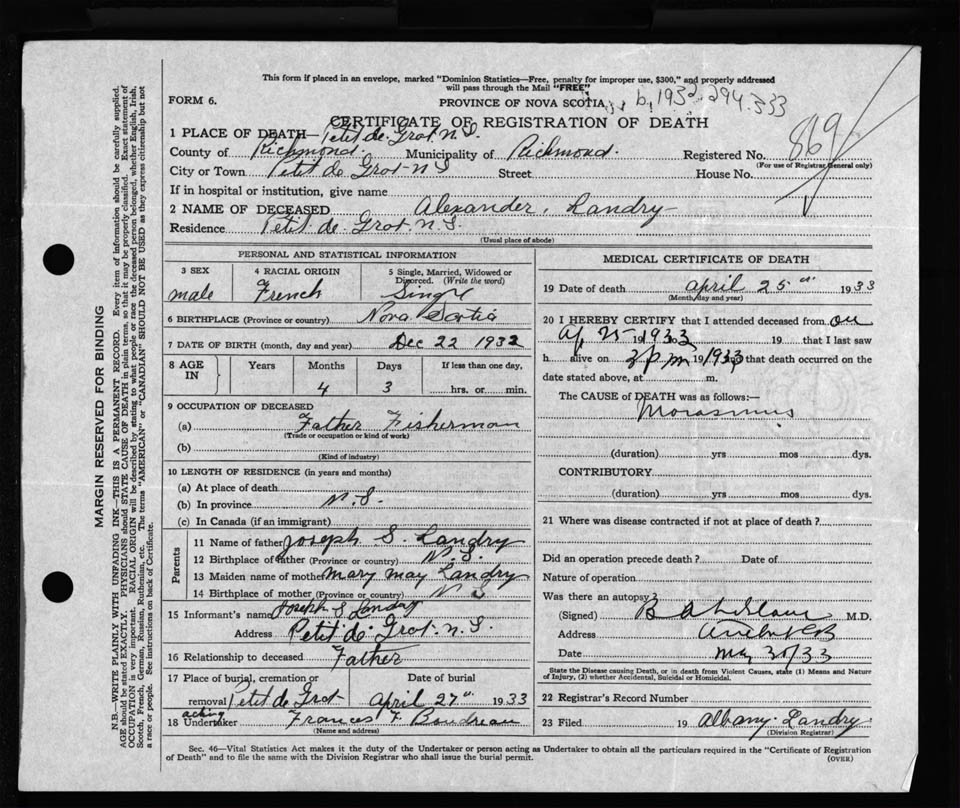 This form if placed in an envelope, marked "Dominion Statistics—Free, penalty for improper use, $300," and properly addressed
will pass through the Mail "FREE"
FORM 6.
PROVINCE OF NOVA SCOTIA
b, 1932 294.333
CERTIFICATE OF REGISTRATION OF DEATH
869
1 PLACE OF DEATH— Petit de Grat N.S.
County of Richmond. Municipality of Richmond. Registered No.
(For use of Registrar General only)
City or Town Petit de Grat N S Street House No.
If in hospital or institution, give name
2 NAME OF DECEASED Alexander, Landry
Residence Petit. de. Grat. N. S.
(Usual place of abode)
PERSONAL AND STATISTICAL INFORMATION
3 SEX
male
4 RACIAL ORIGIN
French
5 Single, Married, Widowed or
Divorced. (Write the word)
Single
6 BIRTHPLACE (Province or country) Nova Scotia
7 DATE OF BIRTH (month, day and year) Dec 22 1932
8 AGE
IN
Years Months Days If less than one day,
4 3 hrs. or min.
9 OCCUPATION OF DECEASED
(a) Father Fisherman
(Trade or occupation or kind of work)
(b)
(Kind of industry)
10 LENGTH OF RESIDENCE (in years and months)
(a) At place of death
(b) In province N. S.
(c) In Canada (if an immigrant)
Parents
11 Name of father Joseph S. Landry
12 Birthplace of father (Province or country) N. S.
13 Maiden name of mother Mary May Landry
14 Birthplace of mother (Province or country) N S
15 Informant's name Joseph S Landry
Address Petit de Grat. N. S.
16 Relationship to deceased Father
17 Place of burial, cremation or Date of burial
removal Petit de Grat April 27th 1933
acting
18 Undertaker Frances F. Boudreau
(Name and address)
MEDICAL CERTIFICATE OF DEATH
19 Date of death april 25th 1933
(Month, day and year)
20 I HEREBY CERTIFY that I attended deceased from on
Ap 25 1933 19 that I last saw
h alive on 2 p m 1933 and that death occurred on the
date stated above, at m.
The CAUSE of DEATH was as follows:—
Morasmus
(duration) yrs mos dys.
CONTRIBUTORY
(duration) yrs mos dys.
21 Where was disease contracted if not at place of death?
Did an operation precede death? Date of
Nature of operation
Was there an autopsy?
(Signed) M.D.
Address
Date May 30/33
State the Disease causing Death, or in death from Violent Causes, state (1) Means and Nature
of Injury, (2) whether Accidental, Suicidal or Homicidal.
22 Registrar's Record Number
23 Filed 19 Albany Landry
(Division Registrar)
Sec. 46—Vital Statistics Act makes it the duty of the Undertaker or person acting as Undertaker to obtain all the particulars required in the "Certificate of Registration
of Death" and to file the same with the Division Registrar who shall issue the burial permit. (OVER)
MARGIN RESERVED FOR BINDING
N.B.—WRITE PLAINLY WITH UNFADING INK—THIS IS A PERMANENT RECORD. Every item of information should be carefully supplied.
AGE should be stated EXACTLY. PHYSICIANS should STATE CAUSE OF DEATH in plain terms, so that it may be properly classified. Exact statement of
OCCUPATION is very important. RACIAL ORIGIN will be described by stating to what people or race the deceased person belonged, whether English, Irish,
Scotch, French, German, Russian, Ruthenian, etc. The terms "AMERICAN" or "CANADIAN" SHOULD NOT BE USED as they express citizenship but not
a race or people. See instructions on back of Certificate.